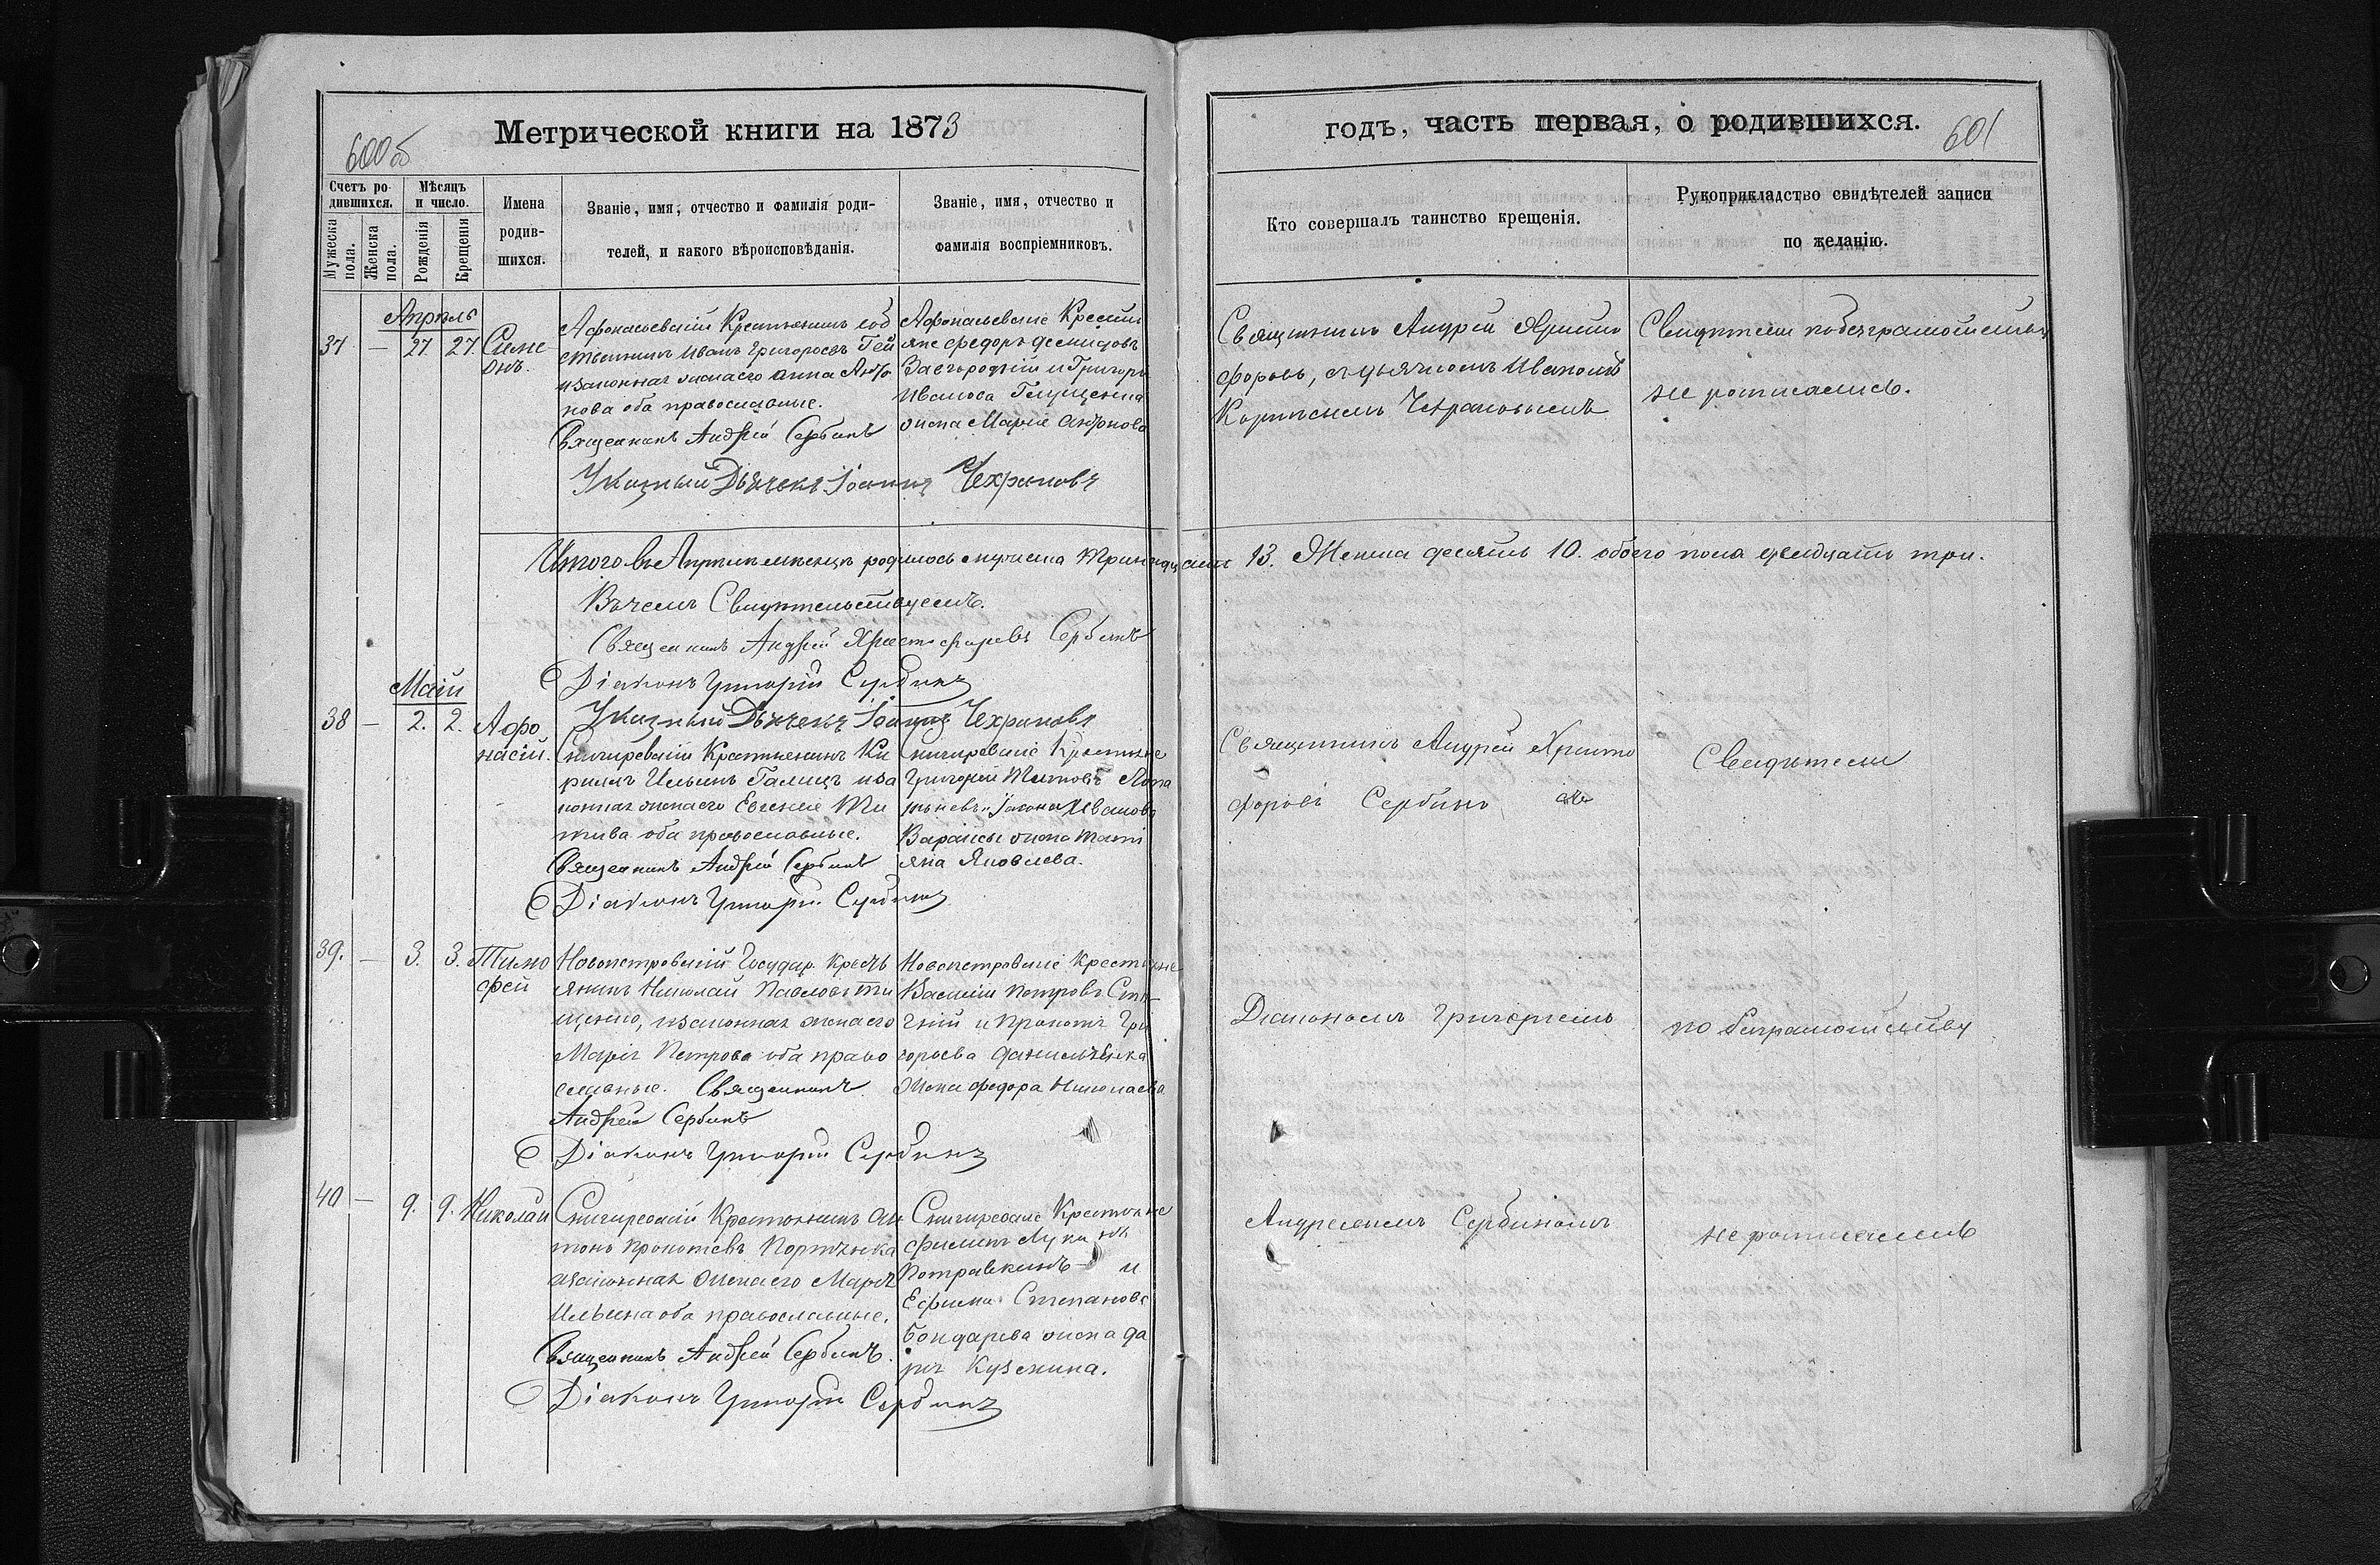 Метрической книги на 1873
600об
Счетъ ро-
дившихся.
Мужеска
пола.
Женска
пола.
Мѣсяцъ
и число.
Рожденія
Крещенія
Имена
родив-
шихся.
Званіе, имя, отчество и фамилія роди-
телей, и какого вѣроисповѣданія.
Званіе, имя, отчество и
фамилія воспріемниковъ.
Апрѣль
37 — 27. 27.
Симе
онъ.
Афонасьевскій Крестьянинъ соб
ственникъ Иванъ Григорьевъ
изаконная жена его Анна
нова оба православные.
Священникъ Андрей Сербинъ
Указный Дьячекъ Іоаннъ Чехрановъ
Афонасьевскіе Крестья
яне Федоръ Демидовъ
Загородній и Григорія
Иванова
жена Марія
Итого въ Апрѣлѣ мѣсяцѣ родилось мужеска тринадцать
Въ чемъ Свидѣтельствуемъ.
Священникъ Андрей Христофоровъ Сербинъ
Діаконъ Григорій Сербинъ
Указный Дьячекъ Іоаннъ Чехрановъ
Май
38 — 2. 2.
Афо
насій.
Снигиревскій Крестьянинъ Ки
рилъ Ильинъ Галицъ иза
конная жена его Евгенія Ти
това оба православные.
Священникъ Андрей Сербинъ
Діаконъ Григорій Сербинъ
Снигиревскіе Крестьяне
Григорій Титовъ
Иванова
жена Тати
яна Яковлева.
39. — 3. 3.
Тимо
фей
Новопетровскій Государ. Кресть
янинъ Николай Павловъ Ти
щенко, изаконная жена его
Марія Петрова оба право
славные. Священникъ
Андрей Сербинъ
Діаконъ Григорій Сербинъ
Новопетровскіе Крестьяне
Василій Петровъ
и Прокопія Гри
горьева Данильченка
жена Федора Николаева
40 — 9. 9. Николай
Снигиревскій Крестьянинъ Ан
тонъ Прокопіевъ
изаконная жена его Марія
Ильина оба православные.
Священникъ Андрей Сербинъ.
Діаконъ Григорій Сербинъ
Снигиревскіе Крестьяне
Филипъ
и
Ефима Степанова
Бондарева жена Да
рія Кузмина.
годъ, часть первая, о родившихся.
601
Кто совершалъ таинство крещенія.
Рукоприкладство свидѣтелей записи
по желанію.
Священникъ Андрей Христо
форовъ, съ дьячкомъ Иваномъ
Чехрановымъ
Свидѣтели по безграмотству
не росписались.
13. Женска десять 10. обоего пола двадцать три.
Священникъ Андрей Христо
форовъ Сербинъ
Свидѣтели
Діакономъ Григоріемъ
по безграмотству
Андреемъ Сербиномъ
не росписались